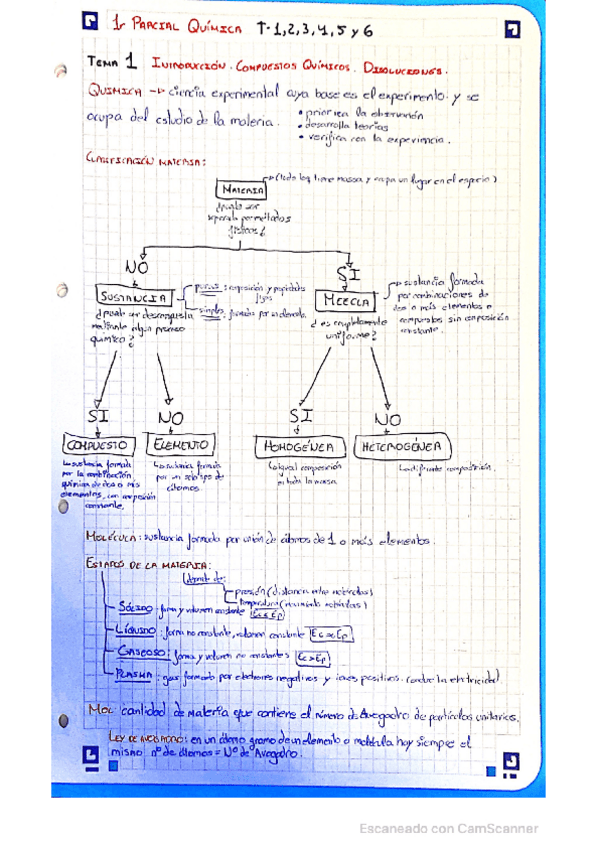 1r PARCIAL QUÍMICA T-1,2,3,4,5 y 6
TEMA 1 INTRODUCCIÓN. COMPUESTOS QUÍMICOS. DISOLUCIONES.
QUÍMICA → ciencia experimental cuya base es el experimento y se
ocupa del estudio de la materia.
• prioriza la observación
• desarrolla teorías
• verifica con la experiencia.
CLASIFICACIÓN MATERIA:
MATERIA
(todo lo q tiene massa y ocupa un lugar en el espacio)
¿puede ser
separada por métodos
físicos?
NO
SI
SUSTANCIA
puras: composición y propiedades
fijas
simples: formadas por un elemento.
¿puede ser descompuesta
mediante algún proceso
químico?
MEZCLA
sustancia formada
por combinaciones de
dos o más elementos o
compuestos sin composición
constante.
¿es completamente
uniforme?
SI
NO
SI
NO
COMPUESTO
ELEMENTO
HOMOGÉNEA
HETEROGÉNEA
sustancia formada
por la combinación
química de dos o más
elementos, con composición
constante.
sustancia formada
por un solo tipo de
átomos.
igual composición
en toda la massa.
diferente composición.
MOLÉCULA: sustancia formada por unión de átomos de 1 o más elementos.
ESTADOS DE LA MATERIA:
depende de:
presión (distancia entre moléculas)
temperatura (movimiento moléculas)
SÓLIDO: forma y volumen constante
LÍQUIDO: forma no constante, volumen constante Ec ≈ Ep
GASEOSO: forma y volumen no constantes Ec > Ep
PLASMA: gas formado por electrones negativos y iones positivos. Conduce la electricidad.
MOL: cantidad de materia que contiene el número de Avogadro de partículas unitarias.
LEY DE AVOGADRO: en un átomo gramo de un elemento o molécula hay siempre el
mismo nº de átomos = Nº de Avogadro.
Escaneado con CamScanner